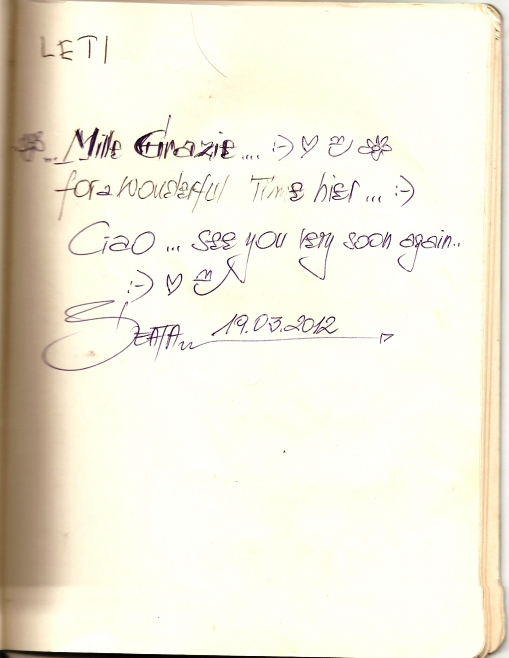 LETI
... Mille Grazie.... :-) ♡
for a wonderful Time hier... :-)
Ciao ... see you very soon again..
:-) ♡
BEATA 19.03.2012